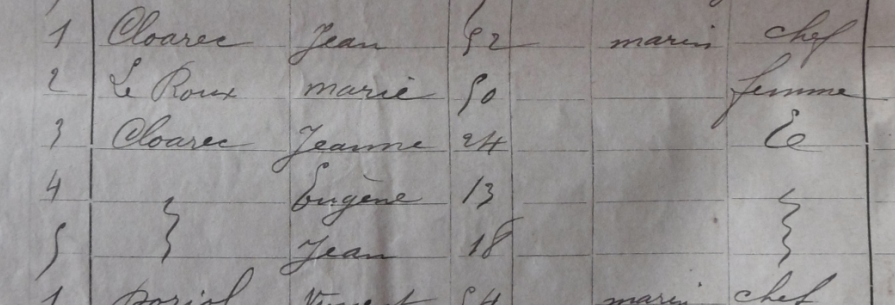 1 Cloarec Jean 52 marin chef
2 Le Roux marie 50 femme
3 Cloarec Jeanne 24 E
4 Eugène 13
5 Jean 18
1 54 marin chef